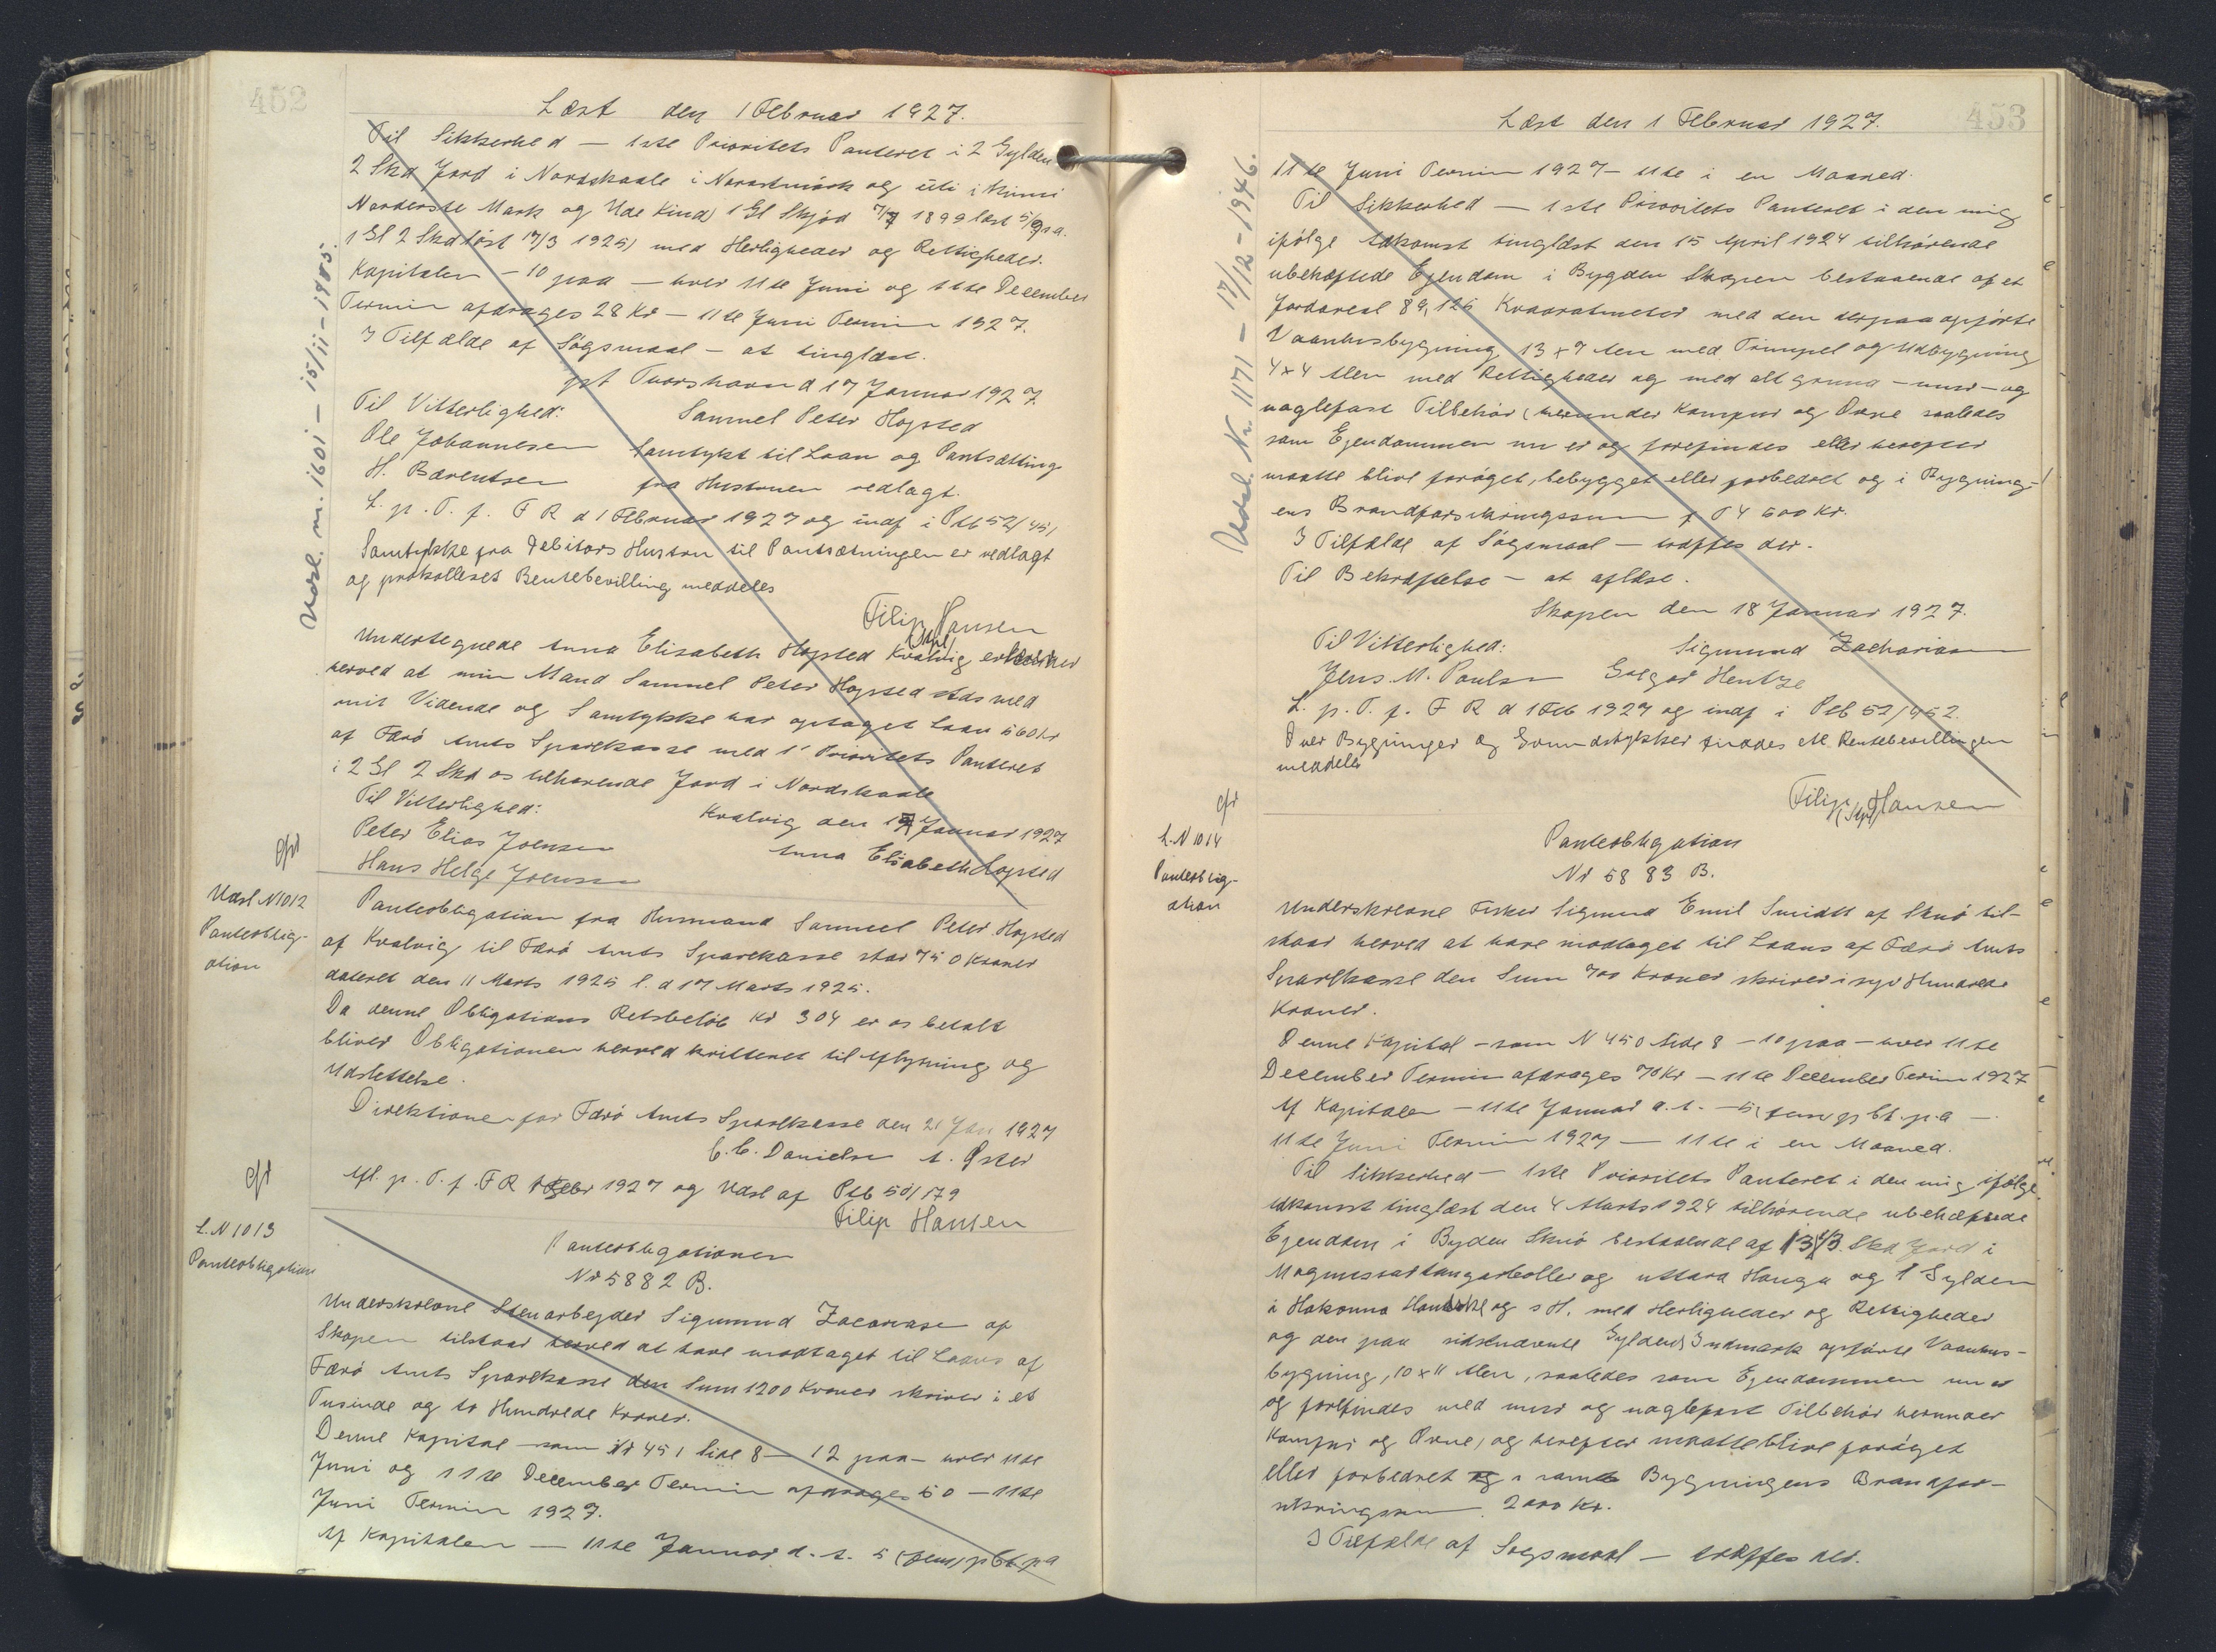 452
Læst den 1 Februar 1927.
Til Sikkerhed — 1ste Prioritets Panteret i 2 Gylden
2 Skd Jord i Nordskaale i Norastmørk og úti i
Norderste Mark og Ude Kind) 1 Gl Skjød 1899 læst
1 Gl 2 Skd løst 17/3 1925) med Herligheder og Rettigheder.
Kapitalen — 10 paa — hver 11te Juni og 11te December
Termin afdrages 28 Kr — 11te Juni Termin 1927.
I Tilfælde af Søgsmaal — at tinglæse.
pt Tvorshavn d 17 Januar 1927
Til Vitterlighed: Samuel Peter Hogsted
Ole Johannesen Samtykt til Laan og Pantsætting
H. Bærentsen fra Hustruen vedlagt.
L. p. T. f. F R d 1 Februar 1927 og indf i Ptb 52/451
Samtykke fra Debitors Hustru til Pantsætningen er vedlagt
og protokolleret Rentebevilling meddeles
Filip Hansen
Undertegnede Anna Elisabeth Hogsted Kvalvig erklærer
herved at min Mand Samuel Peter Hogsted sts med
mit Vidende og Samtykke har optaget Laan 560 Kr
af Færø Amts Sparekasse med 1' Prioritets Panteret
i 2 Gl 2 Skd os tilhørende Jord i Nordskaale
Til Vitterlighed: Kvalvig den 17 Januar 1927
Peter Elias Joensen Anna Elisabeth Hogsted
Hans Helge Joensen
Udsl. nr. 1601 — 15/11 — 1985.
Udsl N 1012
Panteoblig-
ation
Panteobligation fra Husmand Samuel Peter Hogsted
af Kvalvig til Færø Amts Sparekasse stor 750 Kroner
dateret den 11 Marts 1925 l. d 17 Marts 1925.
Da denne Obligations Restbeløb Kr 304 er os betalt
bliver Obligationen herved kvitteret til Aflysning og
Udslettelse.
Direktionen for Færø Amts Sparekasse den 21 Jan 1927
C. C. Danielsen A. Øster
Afl. p. T. f. F R 1 Febr 1927 og Udsl af Ptb 50/179
Filip Hansen
L. N 1013
Panteobligation
Panteobligationen
Nr 5882 B.
Underskrevne Stenarbejder Sigmund Zacariasen af
Skopen tilstaar herved at have modtaget til Laans af
Færø Amts Sparekasse den Sum 1200 Kroner skriver i et
Tusinde og to Hundrede Kroner.
Denne Kapital — som Nr 451 Side 8 — 12 paa — hver 11te
Juni og 11te December Termin afdrages 60 — 11te
Juni Termin 1927.
Af Kapitalen — 11te Januar d. A. 5 (fem) p Ct p a
453
Læst den 1 Februar 1927.
11te Juni Termin 1927 — 11te i en Maaned.
Til Sikkerhed — 1ste Prioritets Panteret i den mig
ifølge Adkomst tinglæst den 15 April 1924 tilhørende
ubehæftede Ejendom i Bygden Skopen bestaaende af et
Jordareal 89,126 Kvadratmeter med den derpaa opførte
Vaanhusbygning 13 x 9 Alen med Trimpel og Udbygning
4x4 Alen med Rettigheder og med alt grund — mur — og
naglefast Tilbehør (herunder Komfur og Ovne saaledes
som Ejendommen nu er og forefindes eller herefter
maatte blive forøget, bebygget eller forbedret og i Bygning-
ens Brandforsikringssum 4 600 Kr.
I Tilfælde af Søgsmaal — træffes der.
Til Bekræftelse — at aflæse.
Skopen den 18 Januar 1927.
Til Vitterlighed: Sigmund Zachariasen
Jens. M. Poulsen Hentze
L. p. T. f. F R d 1 Feb 1927 og indf i Ptb 52/452.
Over Bygninger og Grundstykker findes Rentebevillingen
meddeles
Filip Hansen
Udsl. Nr. 1171 — 17/12 - 1946.
L. N 1014
Panteoblig-
ation
Panteobligation
Nr 5883 B.
Underskrevne Fisker Sigmund Emil Smidtt af Skuø til-
staar herved at have modtaget til Laans af Færø Amts
Sparekasse den Sum 700 Kroner skriver i syv Hundrede
Kroner.
Denne Kapital — som N 450 Side 8 — 10 paa — hver 11te
December Termin afdrages 70 Kr — 11te December Termin 1927
Af Kapitalen — 11te Januar d. A. — 5 (fem) p Ct. p. a —
11te Juni Termin 1927 — 11te i en Maaned.
Til Sikkerhed — 1ste Prioritets Panteret i den mig ifølge
Adkomst tinglæst den 4 Marts 1924 tilhørende ubehæftede
Ejendom i Bygden Skuø bestaaende af Skd Jord i
og uttara Hauga og 1 Gylden
i Hakonna og s H. med Herligheder og Rettigheder
og den paa sidstnævnte Gyldens Indmark opførte Vaanhus-
bygning, 10 x 11 Alen, saaledes som Ejendommen nu er
og forefindes med mur og naglefast Tilbehør herunder
Komfur og Ovne, og herefter maatte blive forøget
eller forbedret og i samt Bygningens Brandfor-
sikringssum 2000 Kr.
I Tilfælde af Søgsmaal — træffes der.